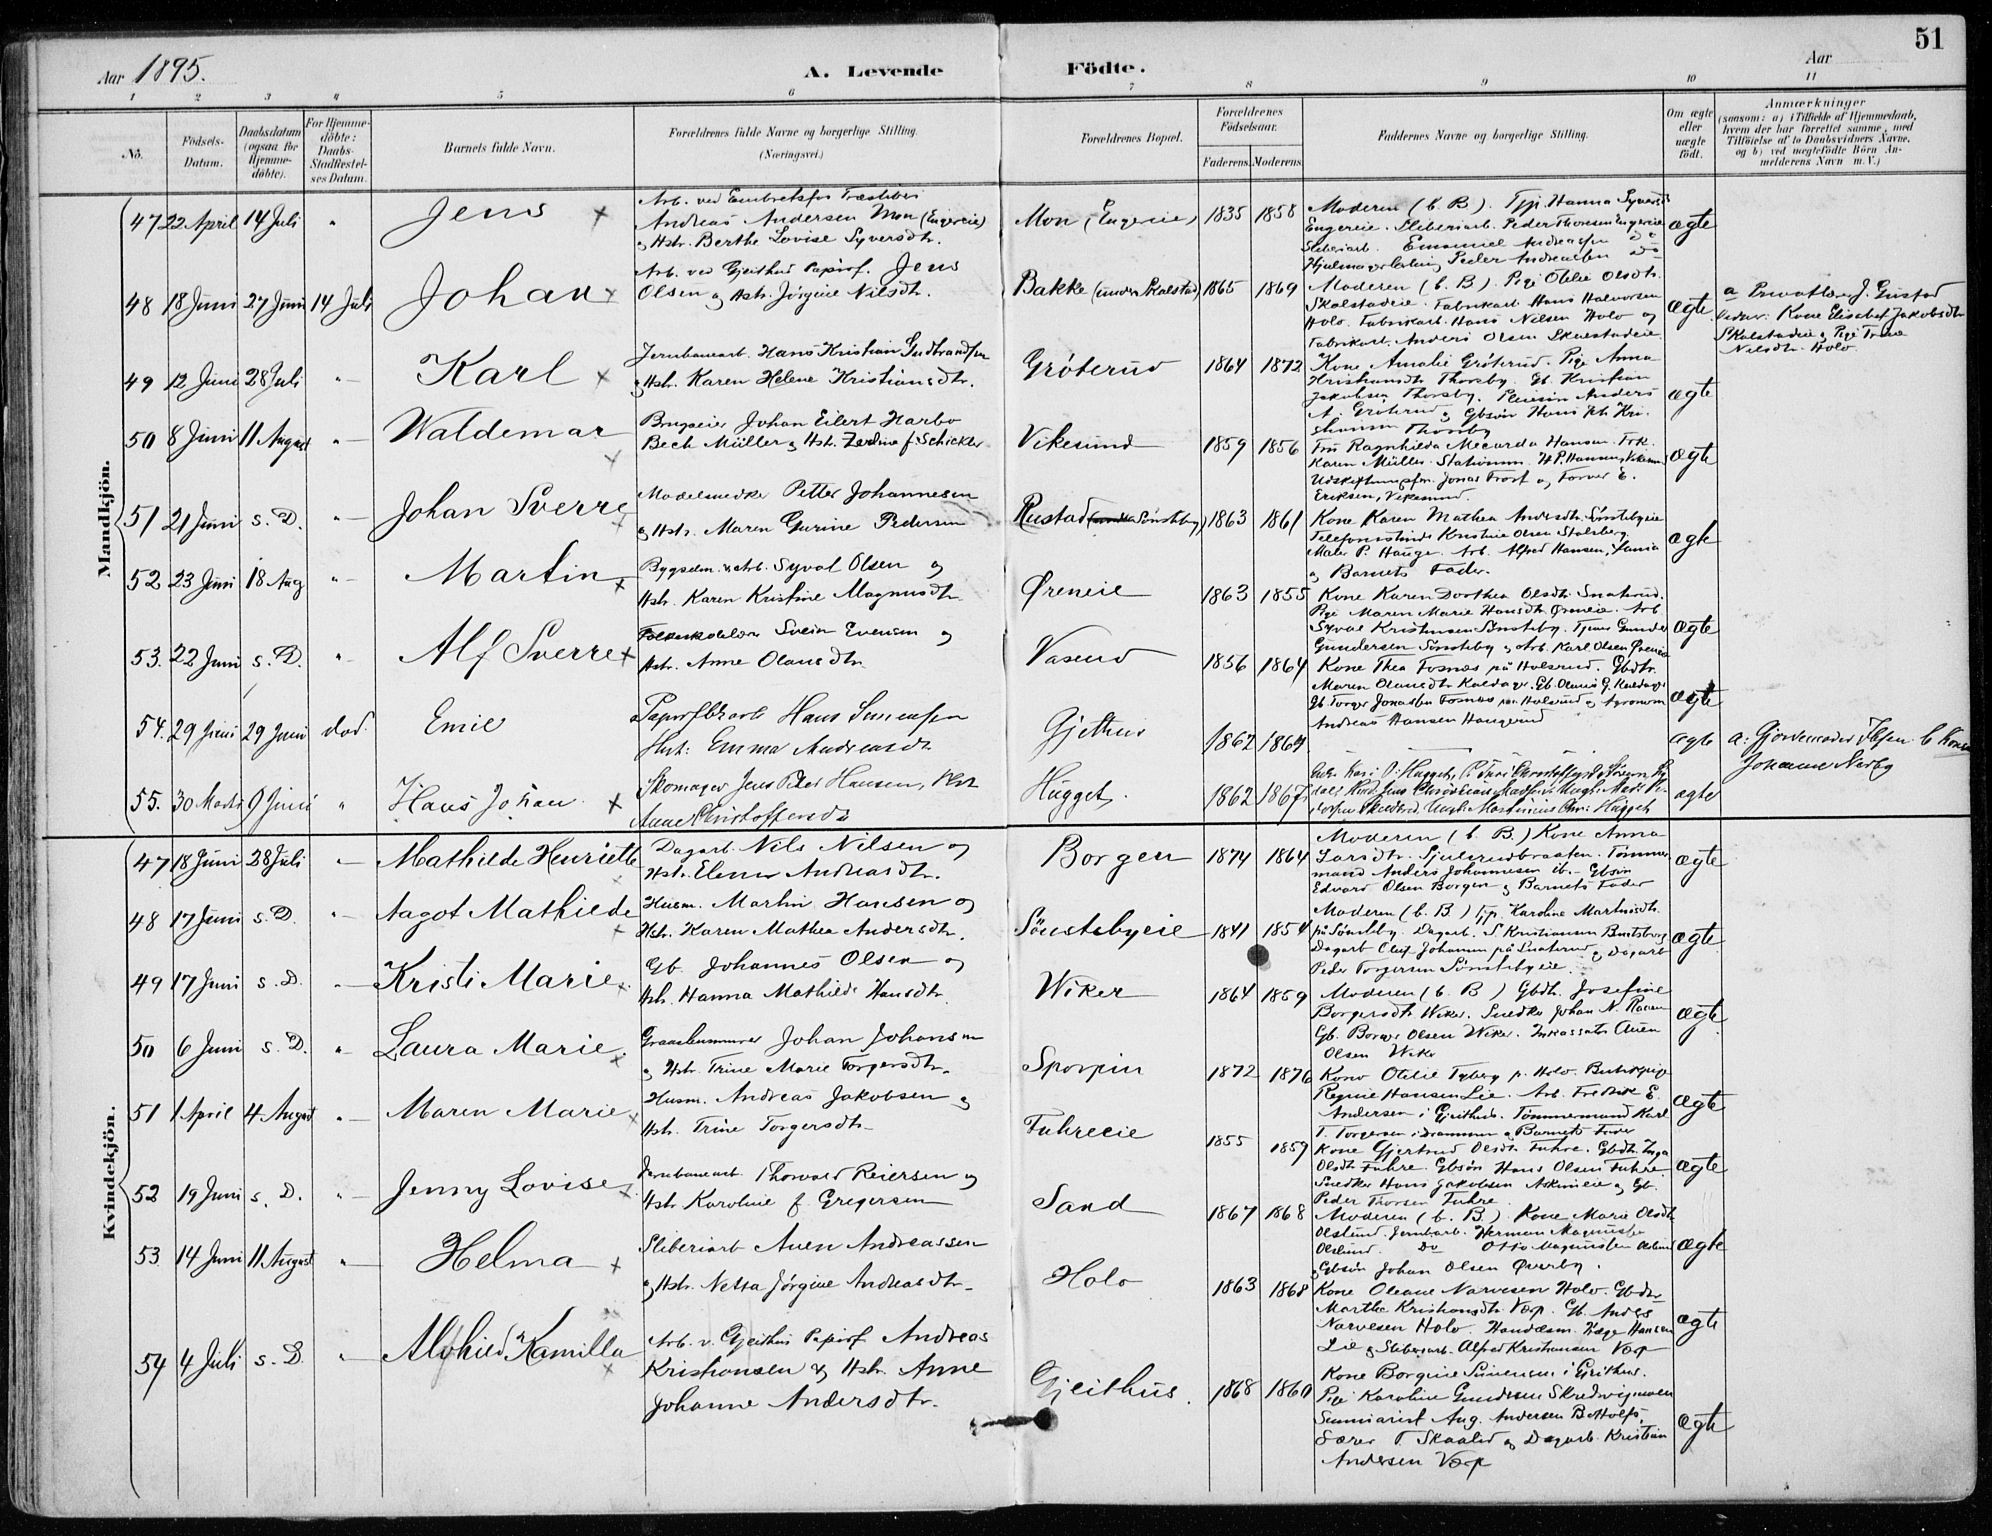 51
Aar 1895.
A. Levende Födte.
Aar
1 2 3 4 5 6 7 8 9 10 11
No.
Födsels-Datum.
Daabsdatum (ogsaa for Hjemme-döbte).
For Hjemme-döbte: Daabs-Stadfestel-ses Datum.
Barnets fulde Navn.
Forældrenes fulde Navne og borgerlige Stilling.
(Næringsvei.)
Forældrenes Bopæl.
Forældrenes Födselsaar.
Faderens. Moderens.
Faddernes Navne og borgerlige Stilling.
Om ægte eller uægte födt.
Anmærkninger
(saasom: a) i Tilfælde af Hjemmedaab,
hvem der har forrettet samme, med
Tilföielse af to Daabsvidners Navne,
og b) ved uægtefödte Börn An-
melderens Navn m. V.)
Mandkjön.
47 22 April 14 Juli " Jens
Arb. ved Embretsfos Træsliberi
Andreas Andersen Mon (Engereie)
og Hstr. Berthe Lovise Syversdtr.
Mon (Engereie) 1835 1858
Moderen (b. B). Tjp. Hanna Syversdt
Engereie. Sliberiarb. Peder Thomsen Engereie
Sliberiarb. Emanuel Andreassen
Hjulmagerlærling Peder Andreassen
ægte
48 18 Juni 27 Juni 14 Juli Johan
Arb. ved Gjeithus Papirf. Jens
Olsen og Hstr. Jørgine Nilsdtr.
Bakke (under Skalstad) 1865 1869
Moderen (b. B). Pige Otilie Olsdtr.
Skalstadeie. Fabrikarb. Hans Halvorsen
Holo. Fabrikarb. Hans Nilsen Holo og
Fabrikarb. Anders Olsen Skalstadeie
ægte
a Privatlærer J. Gustad
Kone Elisabet Jakobsdtr
Skalstadeie og Pige Trine
Nilsdtr. Holo.
49 12 Juni 28 Juli " Karl
Jernbanearb. Hans Kristian Gudbrandsen
og Hstr. Karen Helene Kristiansdtr.
Grøterud 1864 1872
Kone Amalie Grøterud. Pige Anna
Kristiansdtr Thorsby. Gb. Kristian
Jakobsen Thorsby. Anders
A. Grøterud og Gbsøn Hans Kri-
stiansen Thorsby
ægte
50 8 Juni 11 August " Waldemar
Brugseier Johan Eilert Harbo
Bech Müller og Hstr. f. Schickler
Vikesund 1859 1856
Fru Ragnhilda Hansen. Frk.
Karen Müller. H. P. Hansen, Vikesund
Jonas Trost og E.
Eriksen, Vikesund.
ægte
51 21 Juni s. D. " Johan Sverre
Modelsnedker Petter Johannesen
og Hstr. Maren Gurine Pedersen
Rustad (Sønsteby) 1863 1861
Kone Karen Mathea Andersdtr. Sønstebyeie
Telefonistinde Kristine Olsen Stalsberg
Maler P. Hauge. Arb. Alfred Hansen,
og Barnets Fader.
ægte
52 23 Juni 18 Aug " Martin
Bygselm. & Arb. Syval Olsen og
Hstr. Karen Kristine Magnusdtr
Øreneie 1863 1855
Kone Karen Dorthea Olsdtr. Snaterud.
Pige Maren Marie Hansdtr. Øreneie. Arb
Syval Kristensen Sønsteby. Tjener Gunder
Gundersen Sønsteby og Arb. Karl Olsen Øreneie
ægte
53. 22 Juni s. D. " Alf Sverre
Folkeskolelærer Svein Evensen og
Hstr. Anne Olausdtr.
Vaserud 1856 1864
Kone Thea Fosnæs på Holsrud. Gbdtr.
Maren Olausdtr Kaldager. Gb. Olaus G. Kaldager
Gb. Torger Jonassen Fosnæs Holsrud og Agronom
Andreas Hansen Haugerud
ægte
54. 29 Juni 29 Juni død. Emil
Papirfbkarb Hans Simensen
Hustr: Emma Andreasdt
Gjethus 1862 1864
ægte
a: Gjordemoder Ibsen b Kone
Johanne Nerby
55. 30 Marts 9 Juni " Hans Johan
Skomager Jens Peter Hansen, Hst
Anne Kristoffersdt
Hugget. 1862 1867
ægte
Kvindekjön.
47 18 Juni 28 Juli " Mathilde Henriette
Dagarb. Nils Nilsen og
Hstr. Elenor Andreasdtr.
Borgen 1874 1864
Moderen (b. B.) Kone Anna
Larsdtr. Sjulsrudbraaten. Tømmer-
mand Anders Johannesen ib. Gbsøn
Edvard Olsen Borgen og Barnets Fader
ægte
48 17 Juni s. D. " Aagot Mathilde
Husm. Martin Hansen og
Hstr. Karen Mathea Andersdtr.
Sönstebyeie 1841 1854
Moderen (b. B.) Tjp. Karoline Martinsdtr.
på Sønsteby. Dagarb. S. Kristiansen
Dagarb. Oluf Johansen på Snaterud og Dagarb
Peder Torgersen Sønstebyeie.
ægte
49 17 Juni s. D. " Kristi Marie
Gb. Johannes Olsen og
Hstr. Hanna Mathilde Hansdtr.
Wiker 1864 1859
Moderen (b. B) Gbdtr. Josefine
Borgersdtr Wiker. Snedker Johan N. Raaen
Gb. Borger Olsen Wiker. Inkassator Auen
Olsen Wiker
ægte
50 6 Juni s. D. " Laura Marie
Johan Johansen
og Hstr. Trine Marie Torgersdtr.
Sporpin 1872 1876
Kone Otilie Tyberg p. Holo. Butikspige
Regine Hansen Lie. Arb. Fredrik E.
Andersen i Gjeithus. Tømmermand Karl
T. Torgersen i Drammen og Barnets Fader
ægte
51 1 April 4 August " Maren Marie
Husm. Andreas Jakobsen og
Hstr. Trine Torgersdtr.
Fuhreeie 1855 1859
Kone Gjertrud Olsdtr Fuhre. Gbdtr. Inga
Olsdtr Fuhre. Gbsøn Hans Olsen Fuhre
Snedker Hans Jakobsen Askimeie og Gb.
Peder Thorsen Fuhre.
ægte
52 19 Juni s. D. " Jenny Lovise
Jernbanearb. Thorvald Reiersen og
Hstr Karoline f. Gregersen
Sand 1867 1868
Moderen (b. B.) Kone Marie Olsdtr
Olslund. Jernbarb. Herman Magnussen
Olslund. Do Otto Magnussen Olslund
og Gbsøn Johan Olsen Øverby.
ægte
53 14 Juni 11 August " Helma
Sliberiarb Auen Andreassen
og Hstr. Netta Jørgine Andreasdtr.
Holo 1863 1868
Kone Oleane Narvesen Holo. Gbdtr
Marthe Kristiansdtr Værp. Gb. Anders
Narvesen Holo. Handelsm. Hage Hansen
Lie og Sliberiarb. Alfred Kristiansen Værp
ægte
54 4 Juli s. D. " Alvhild Kamilla
Arb. v. Gjeithus Papirf Andreas
Kristiansen og Hstr. Anne
Johanne Andersdtr.
Gjeithus. 1868 1860
Kone Borgine Simensen i Gjeithus.
Pige Karoline Gundersen Skredvigmoen
Seminarist Aug. Andersen Bottolfs,
Lærer T. Skaalid og Dagarb. Kristian
Andersen Værp
ægte